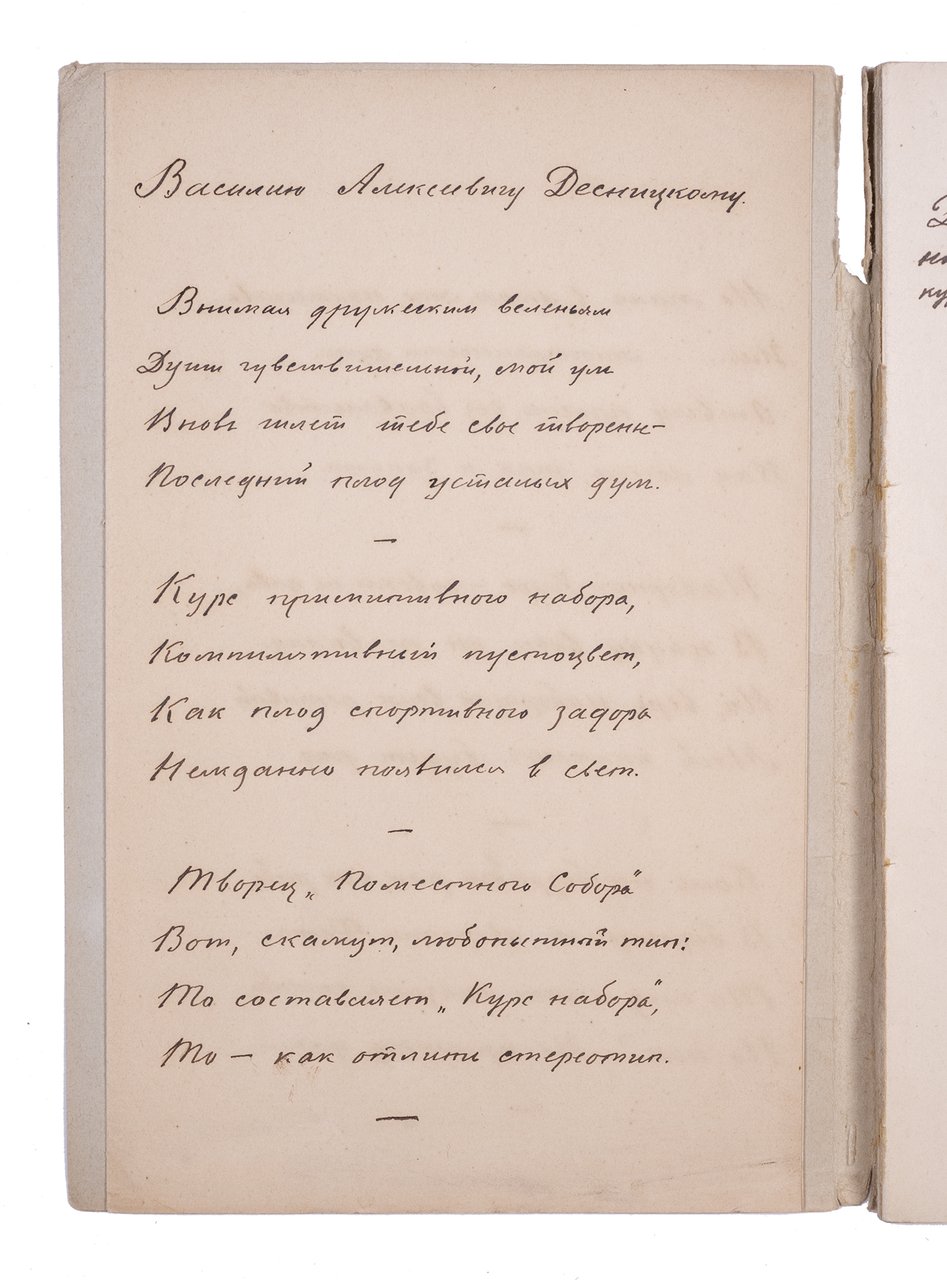 Василию Алексеевичу Десницкому.
Внимая дружеским веленьям
Души чувствительной, мой ум
Вновь шлет тебе свое творенье –
Последний плод усталых дум.
—
Курс примитивного набора,
Компилятивный пустоцвет,
Как плод спортивного задора
Нежданно появился в свет.
—
Творец „Поместного Собора"
Вот, скажут, любопытный тип:
То составляет „Курс набора",
То — как отлить стереотип.
—